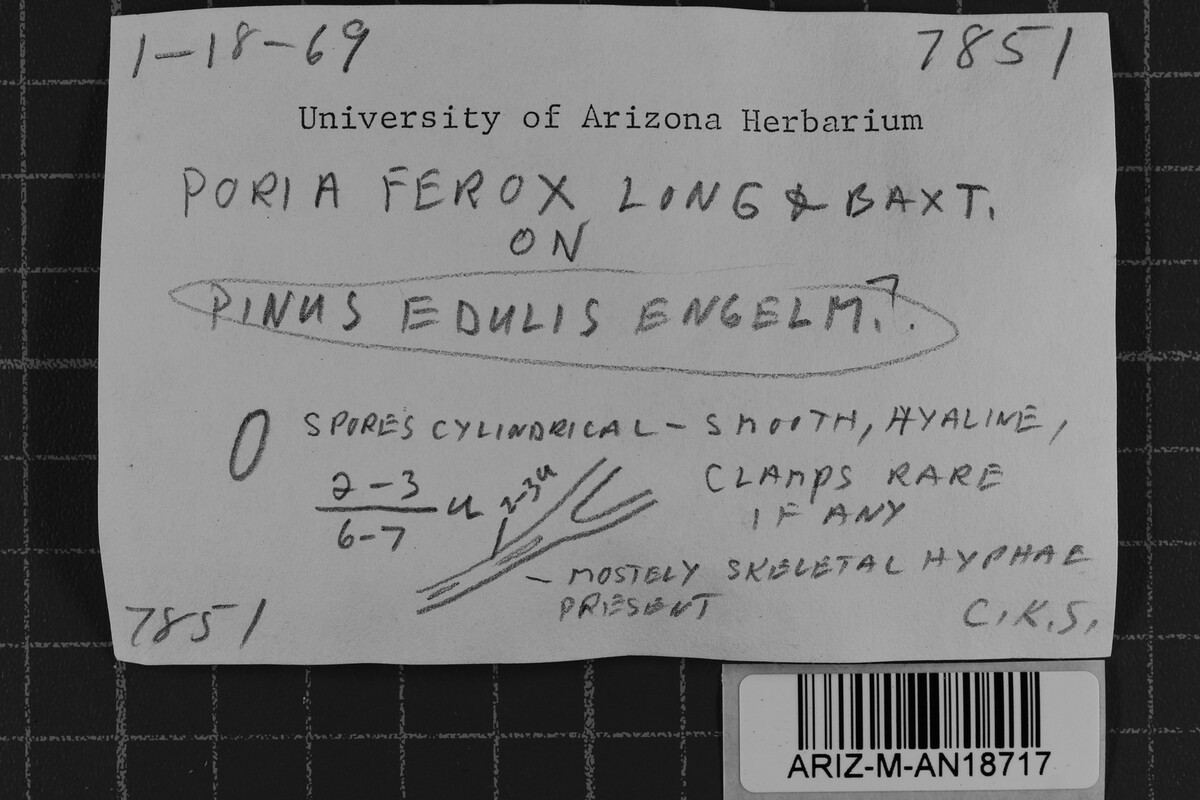 1-18-69 7851
University of Arizona Herbarium
PORIA FEROX LONG & BAXT.
ON
PINUS EDULIS ENGELM.?
SPORES CYLINDRICAL - SMOOTH, HYALINE,
2-3
6-7 u 2-3u
CLAMPS RARE
IF ANY
- MOSTELY SKELETAL HYPHAE
PRESENT
7851 C.K.S.
ARIZ-M-AN18717